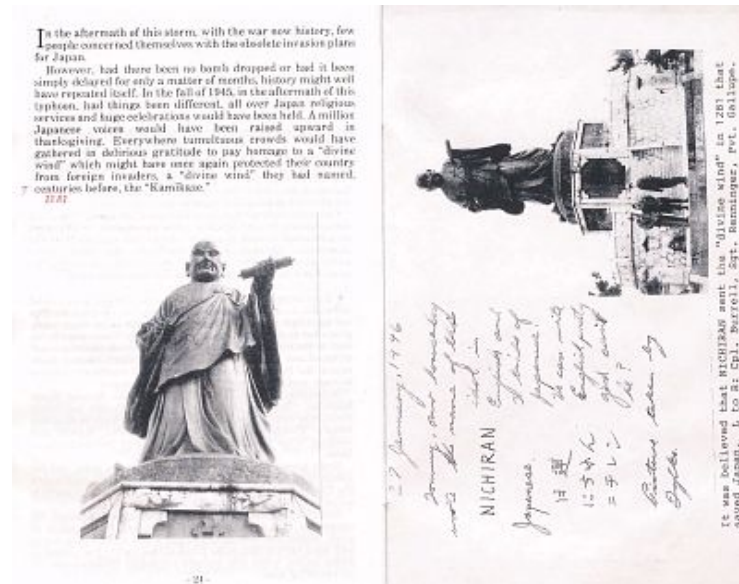 In the aftermath of this storm, with the war now history, few
people concerned themselves with the obsolete invasion plans
for Japan.
However, had there been no bomb dropped or had it been
simply delayed for only a matter of months, history might well
have repeated itself. In the fall of 1945, in the aftermath of this
typhoon, had things been different, all over Japan religious
services and huge celebrations would have been held. A million
Japanese voices would have been raised upward in
thanksgiving. Everywhere tumultuous crowds would have
gathered in delirious gratitude to pay homage to a "divine
wind" which might have once again protected their country
from foreign invaders, a "divine wind" they had named,
7 centuries before, the "Kamikaze."
1281
- 24 -
27 January, 1946
Tommy, our houseboy
wrote the name of this
idol in
English and
3 kinds of
Japanese!
He can write
English pretty
good can't
he?
NICHIRAN
Japanese.
日蓮
にちれん
ニチレン
Picture taken by
It was believed that NICHIRAN sent the "divine wind" in 1281 that
saved Japan. L to R: Cpl. Burrell, Sgt. Renninger, Pvt. Gallupe.